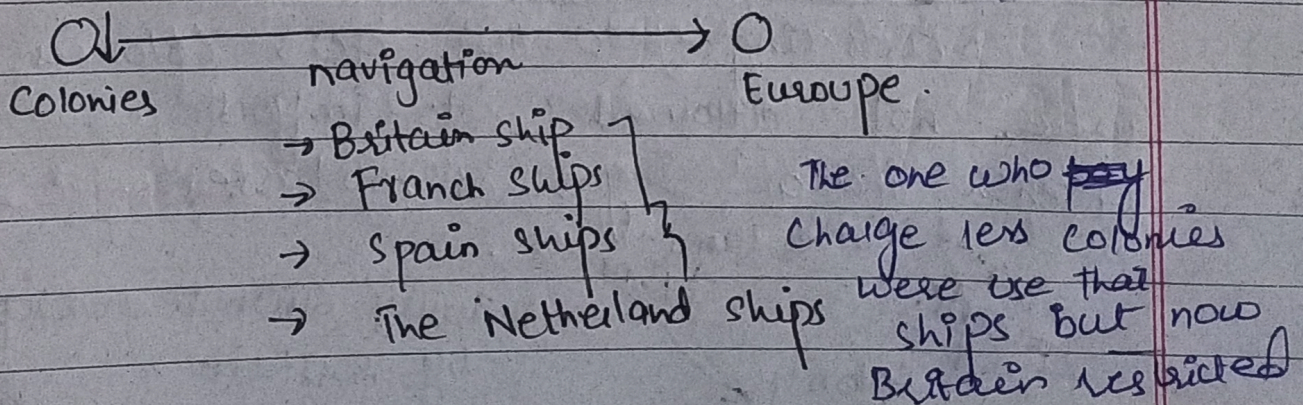 Colonies
navigation
Euroupe.
→ Britain ship
→ Franch ships
→ Spain ships
→ The Netherland ships
The one who
charge less colonies
were use that
ships but now
Britain restricted